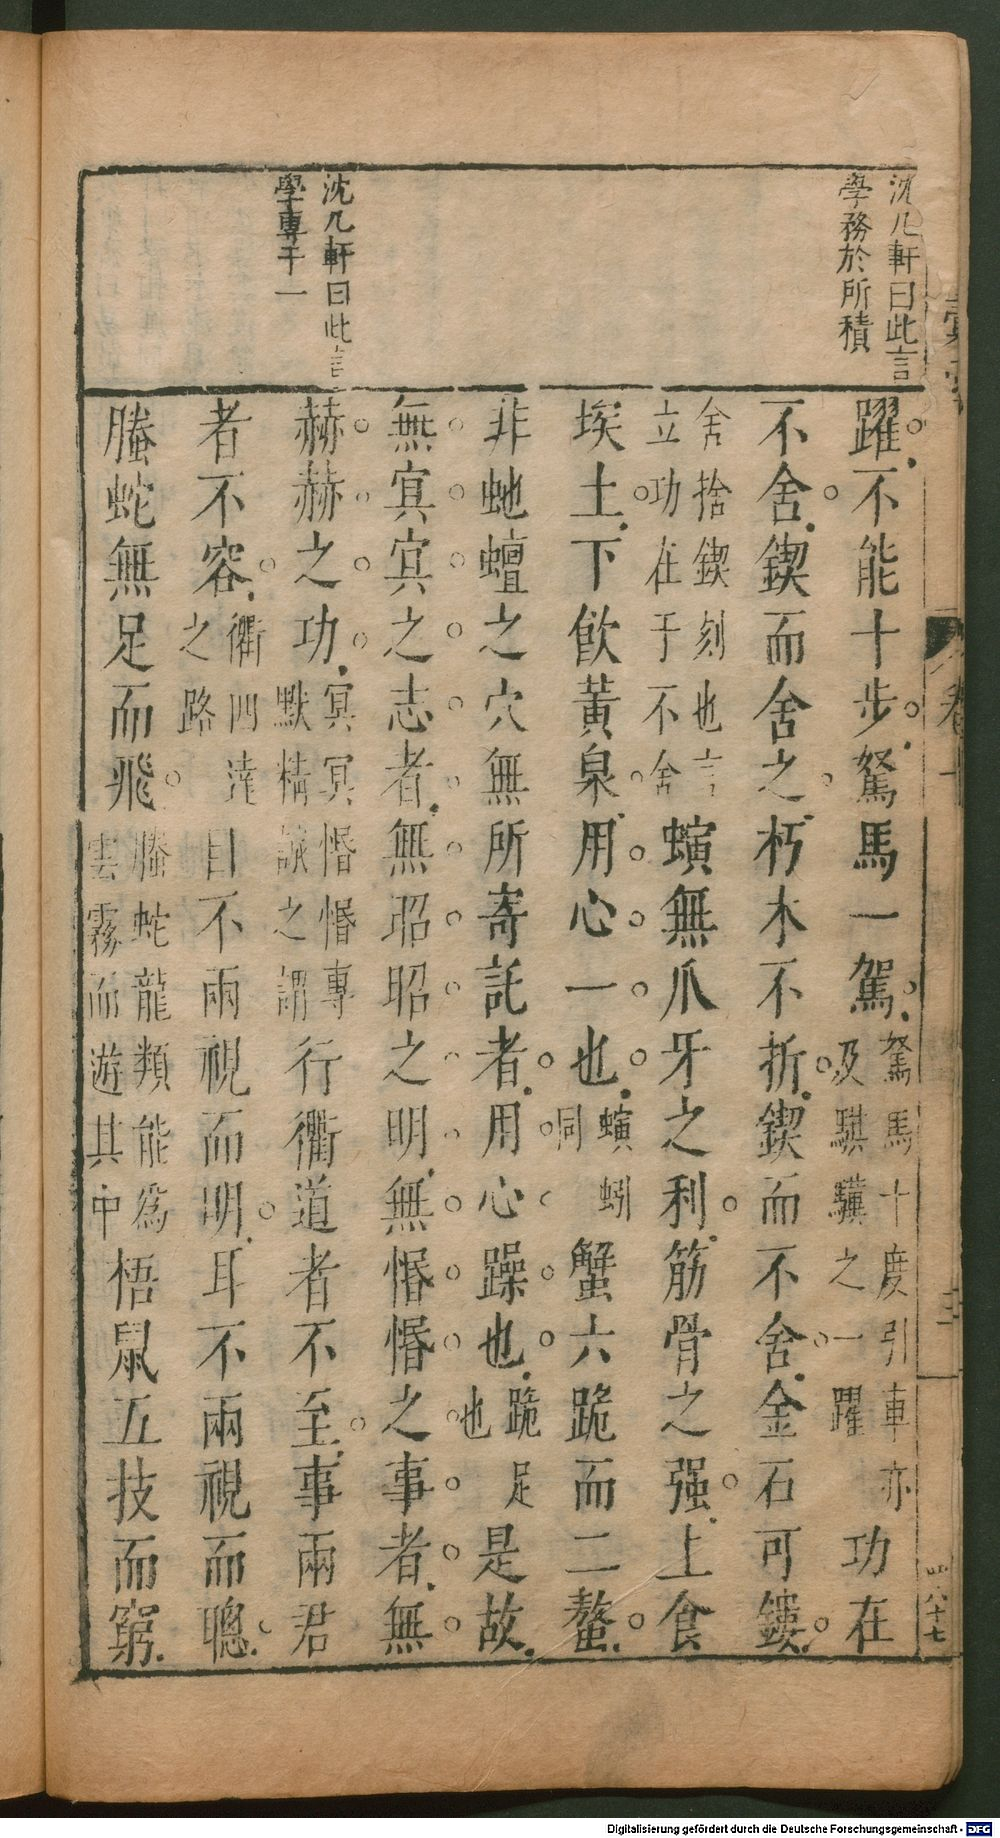 沈几軒曰此言
學務於所積
沈几軒曰此言
學專于一
躍不能十步駑馬一駕駑馬十度引車亦及騏驥之一躍功在
不舍鍥而舍之朽木不折鍥而不舍金石可鏤
舍捨鍥刻也言立功在于不舍螾無爪牙之利筋骨之强上食
埃土下飲黃泉用心一也螾蚓同蟹六跪而二螯
非虵蟺之穴無所寄託者用心躁也跪足也是故
無冥冥之志者無昭昭之明無惛惛之事者無
赫赫之功冥冥惛惛專默精誠之謂行衢道者不至事兩君
者不容衢四達之路目不兩視而明耳不兩視而聰
螣蛇無足而飛螣蛇龍類能爲雲霧而遊其中梧鼠五技而窮
卷
三
八十七
Digitalisierung gefördert durch die Deutsche Forschungsgemeinschaft - DFG